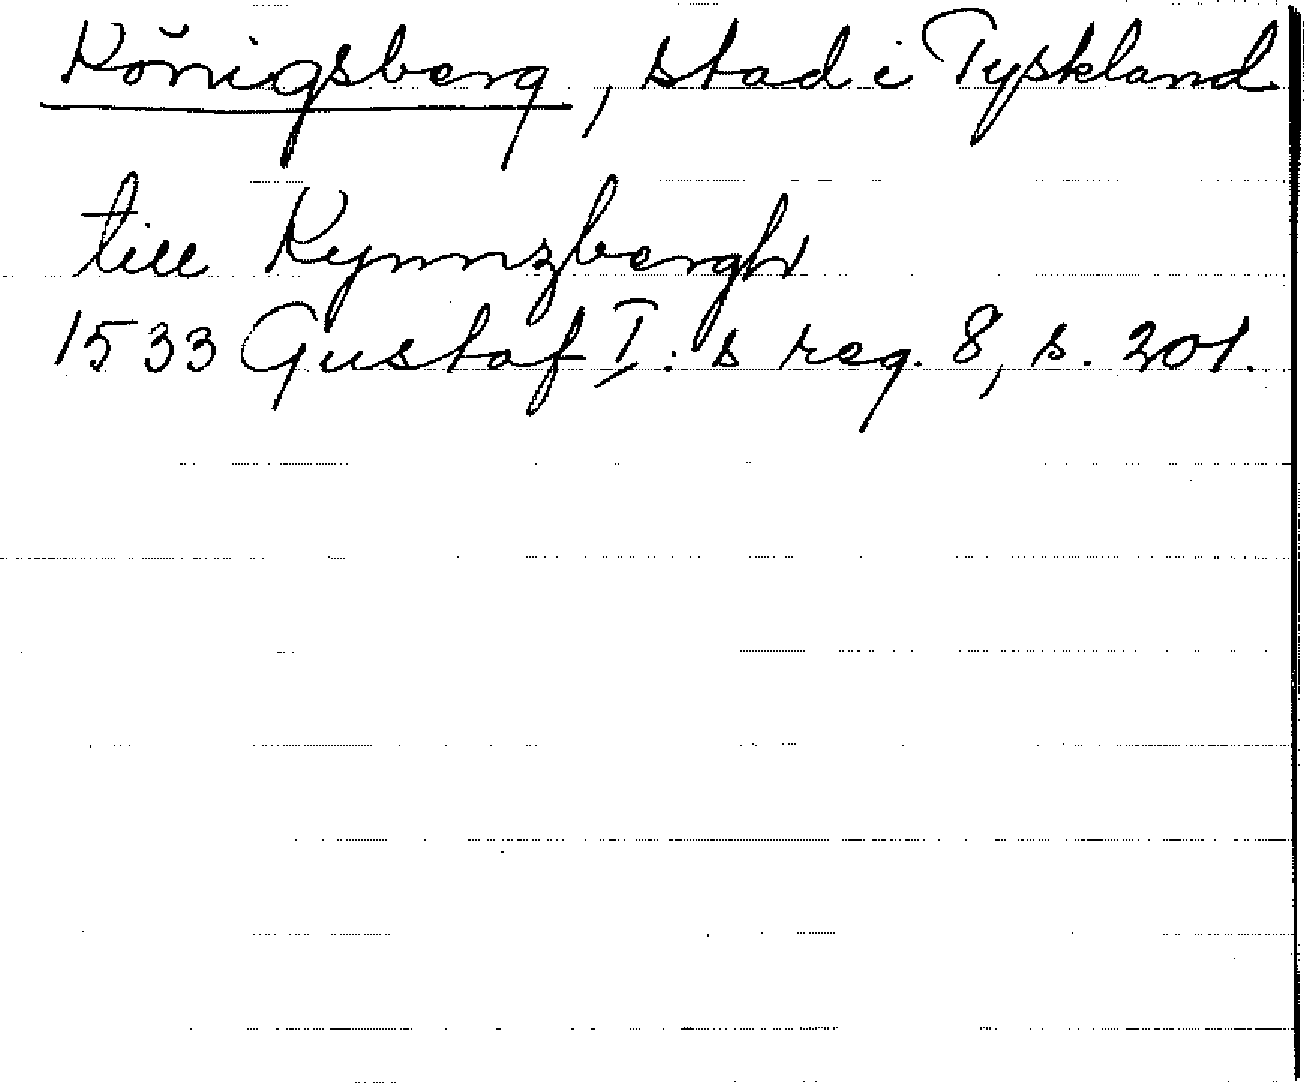 Königsberg, stad i Tyskland
till Kynnzbergh
1533 Gustaf I:s reg. 8, s. 201.